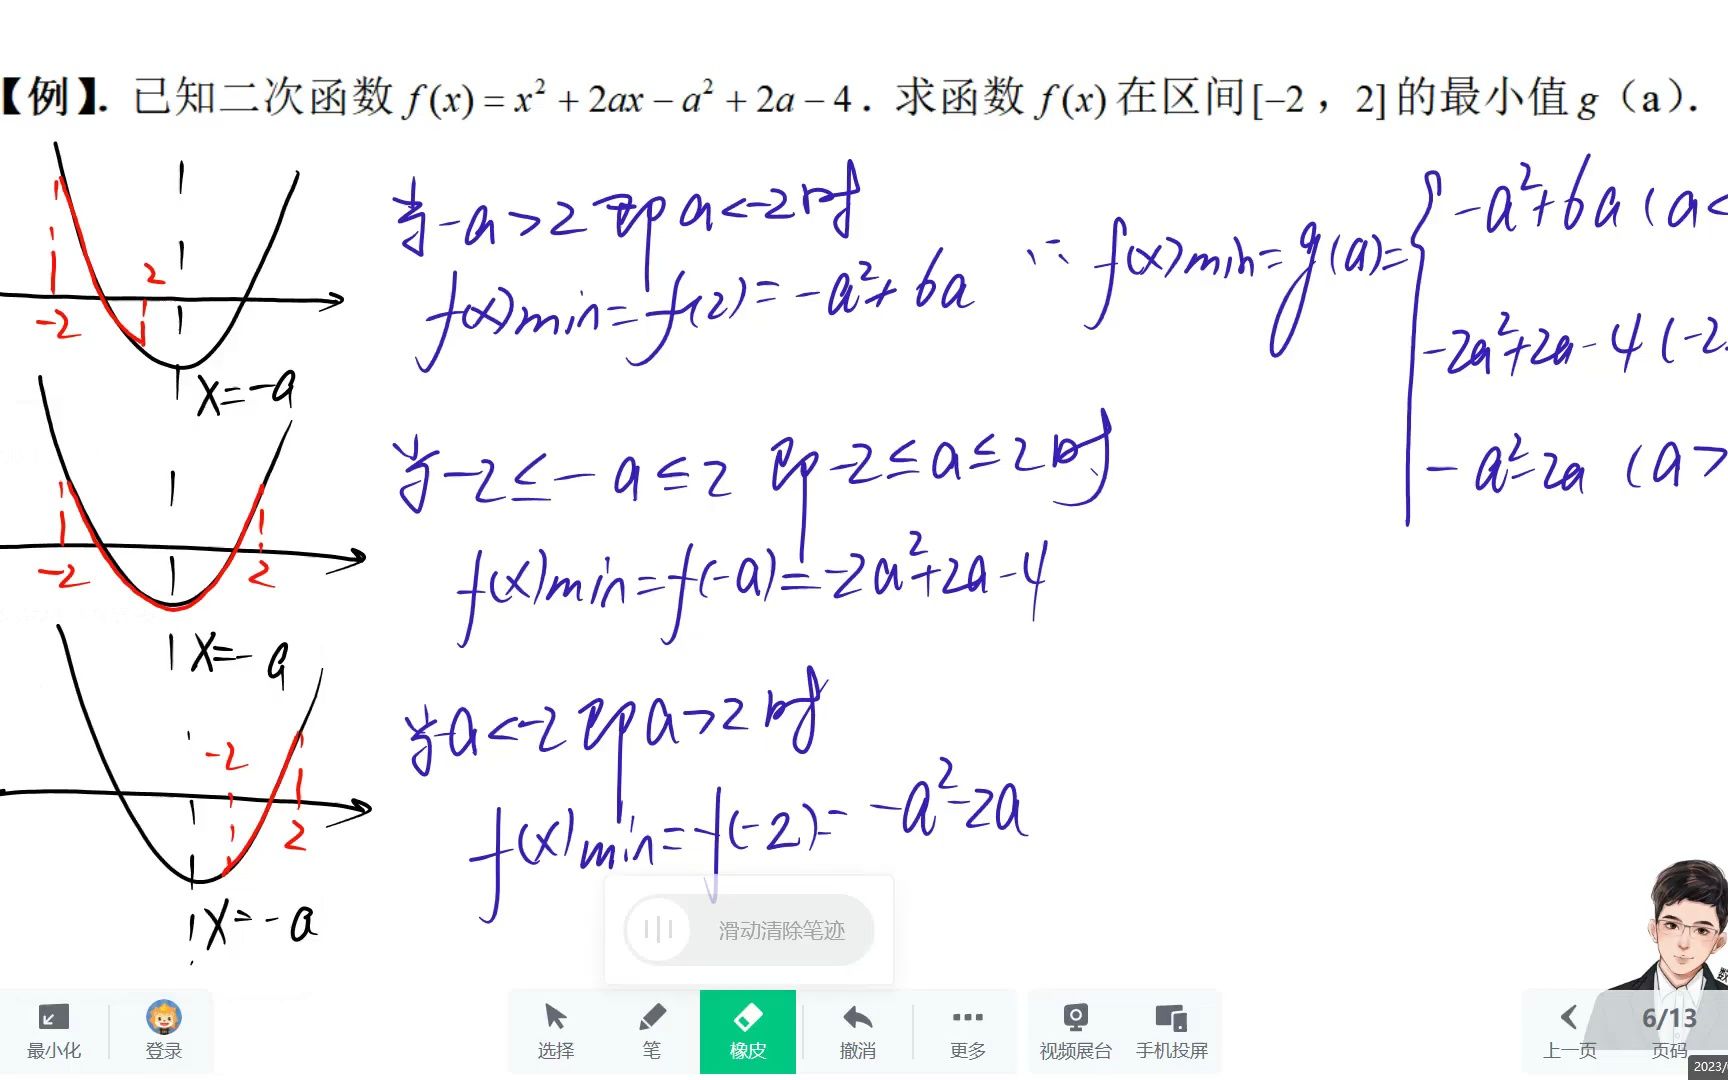 【例】. 已知二次函数 f(x) = x² + 2ax − a² + 2a − 4 . 求函数 f(x) 在区间 [−2 , 2] 的最小值 g (a).
-2
2
x=-a
当-a>2 即 a<-2时
f(x)min=f(2)=-a²+6a
∴ f(x)min=g(a)={
-a²+6a (a<
-2a²+2a-4 (-2
-a²-2a (a>
-2
2
x=-a
当-2≤-a≤2 即-2≤a≤2时
f(x)min=f(-a)=-2a²+2a-4
-2
2
x=-a
当-a<-2 即a>2时
f(x)min=f(-2)=-a²-2a
滑动清除笔迹
最小化
登录
选择
笔
橡皮
撤消
更多
视频展台
手机投屏
上一页
6/13
页码
数
2023/